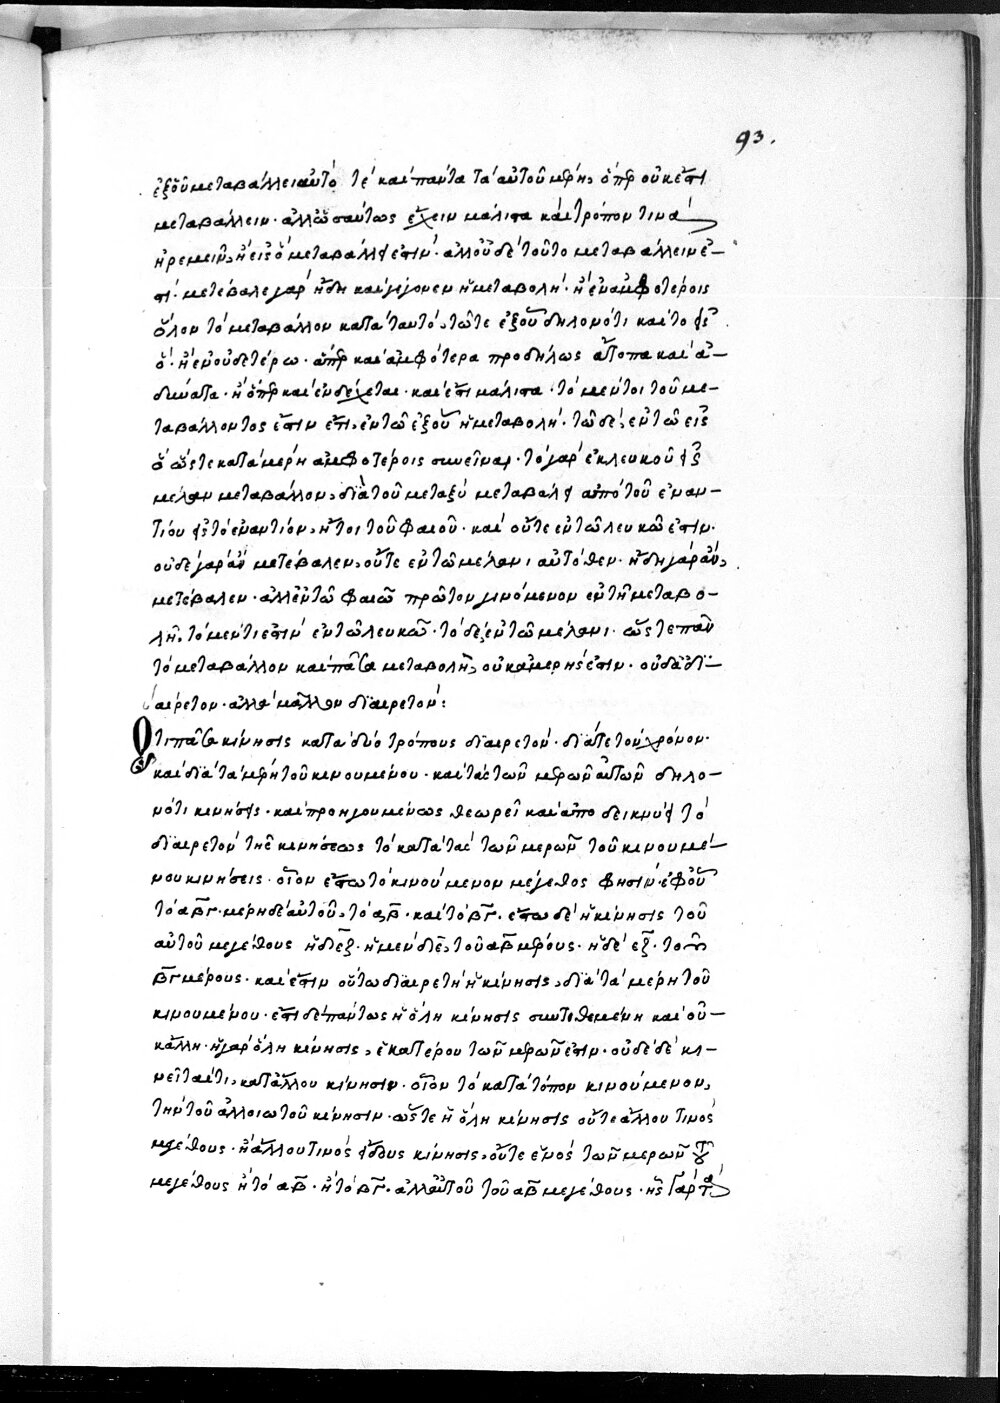 93.
ἐξ οὗ μεταβάλλει αὐτό τε καὶ πάντα τὰ αὐτοῦ μέρη, ὅπερ οὐκ ἔστι
μεταβάλλειν· ἀλλ' ὡσαύτως ἔχειν μάλιστα καὶ τρόπον τινὰ
ἠρεμεῖν, ἢ εἰς ὃ μεταβάλλει ἐστίν· ἀλλ' οὐδὲ τοῦτο μεταβάλλειν ἐ–
στί· μετέβαλε γὰρ ἤδη καὶ γέγονεν ἡ μεταβολή· ἢ ἐν ἀμφοτέροις
ὅλον τὸ μεταβάλλον κατὰ ταυτό, τῶτε ἐξ οὗ δηλονότι καὶ το εἰς
ὅ· ἢ ἐν οὐδετέρω· ἅπερ καὶ ἀμφότερα προδήλως ἄτοπα καὶ ἀ–
δύνατα· ἢ ὅπερ καὶ ἐνδέχεται· καὶ ἔστι μάλιστα· τὸ μέν τοι τοῦ με–
ταβάλλοντος ἐστιν ἔτι, ἐν τῶ ἐξ οὗ ἡ μεταβολή· τῶ δὲ, ἐν τῶ εἰς
ὅ ὥστε κατὰ μέρη ἀμφοτέροις συνεῖναι· τὸ γὰρ ἐκ λευκοῦ εἰς
μέλαν μεταβάλλον, διὰ τοῦ μεταξὺ μεταβάλλει ἀπὸ τοῦ ἐναν–
τίου εἰς τὸ ἐναντίον, ἤτοι τοῦ φαιοῦ· καὶ οὔτε ἐν τῶ λευκῶ ἐστιν·
οὐδὲ γὰρ ἂν μετέβαλεν, οὔτε ἐν τῶ μέλανι αὐτόθεν· ἤδη γὰρ ἂν,
μετέβαλεν· ἀλλ' ἐν τῶ φαιῶ πρῶτον γινόμενον ἐν τῆ μεταβο–
λῆ, τὸ μέν τι ἐστιν ἐν τῶ λευκῶ· τὸ δὲ, ἐν τῶ μέλανι· ὥστε πᾶν
τὸ μεταβάλλον καὶ πᾶσα μεταβολὴ, οὐκ ἀμερής ἐστιν· οὐδ' ἀδι–
αίρετον· ἀλλὰ μᾶλλον διαιρετόν:
Ὅτι πᾶσα κίνησις κατὰ δύο τρόπους διαιρετόν· διά τε τὸν χρόνον·
καὶ διὰ τὰ μέρη τοῦ κινουμένου· καὶ τὰς τῶν μερῶν αὐτῶν δηλο–
νότι κινήσεις· καὶ προηγουμένως θεωρεῖ καὶ ἀποδεικνύει τὸ
διαιρετὸν τῆς κινήσεως τὸ κατὰ τὰς τῶν μερῶν τοῦ κινουμέ–
νου κινήσεις· οἷον ἔστω τὸ κινούμενον μέγεθος φησὶν· ἐφ' οὗ
τὸ αβγ· μέρη δὲ αὐτοῦ, τὸ αβ· καὶ τὸ βγ· ἔστω δὲ ἡ κίνησις τοῦ
αὐτοῦ μεγέθους ἡ δεζ· ἡ μὲν δε, τοῦ αβ μέρους· ἡ δὲ εζ· τοῦ
βγ μέρους· καὶ ἔστιν οὕτω διαιρετὴ ἡ κίνησις, διὰ τὰ μέρη τοῦ
κινουμένου· ἔτι δὲ πάντως ἡ ὅλη κίνησις συντεθειμένη καὶ οὐ–
κ ἄλλη· ἡ γὰρ ὅλη κίνησις, ἑκατέρου τῶν μερῶν ἐστιν· οὐδὲ δὲ κι–
νεῖταί τι, κατ' ἄλλου κίνησιν· οἷον τὸ κατὰ τόπον κινούμενον,
τὴν τοῦ ἀλλοιωτοῦ κίνησιν· ὥστε ἡ ὅλη κίνησις οὔτε ἄλλου τινὸς
μεγέθους· ἢ ἄλλου τινὸς εἴδους κίνησις, οὔτε ἑνὸς τῶν μερῶν τοῦ
μεγέθους ἢ τὸ αβ· ἢ τὸ βγ· ἀλλ' αὐτοῦ τοῦ αβ μεγέθους· ἧς γὰρ τὰ